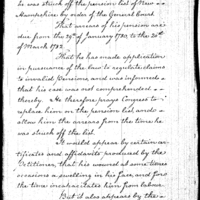 he was struck off the pension list of New
Hampshire by order of the General Court
That arrears of his pension are
due from the 29th of January 1780, to the 20th
of March 1792.
That he has made application
in pursuance of the law to regulate claims
to invalid Pensions, and was informed
that his case was not comprehended
thereby. He therefore prays Congress to
place him on the pension list, and
allow him the arrears from the time he
was struck off the list.
It would appear by certain
certificates and affidavits produced by the
Petitioner, that his wound at some times
occasions a swelling in his face, and for
the time incapacitates him from labour.
But it also appears by the